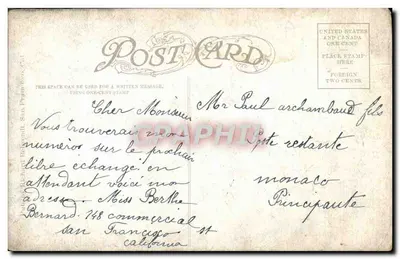 POST CARD
UNITED STATES
AND CANADA
ONE CENT
PLACE STAMP
HERE
FOREIGN
TWO CENTS
THIS SPACE CAN BE USED FOR A WRITTEN MESSAGE,
Cher Monsieur
Vous trouverai mon
numeros sur le prochain
libre echange en
attendant voici mo
adress. Miss Bertha
Bernard. 748 commercial st
san Francisco
california
Mr Paul archambaud fils
Poste restante
monaco
Principaute